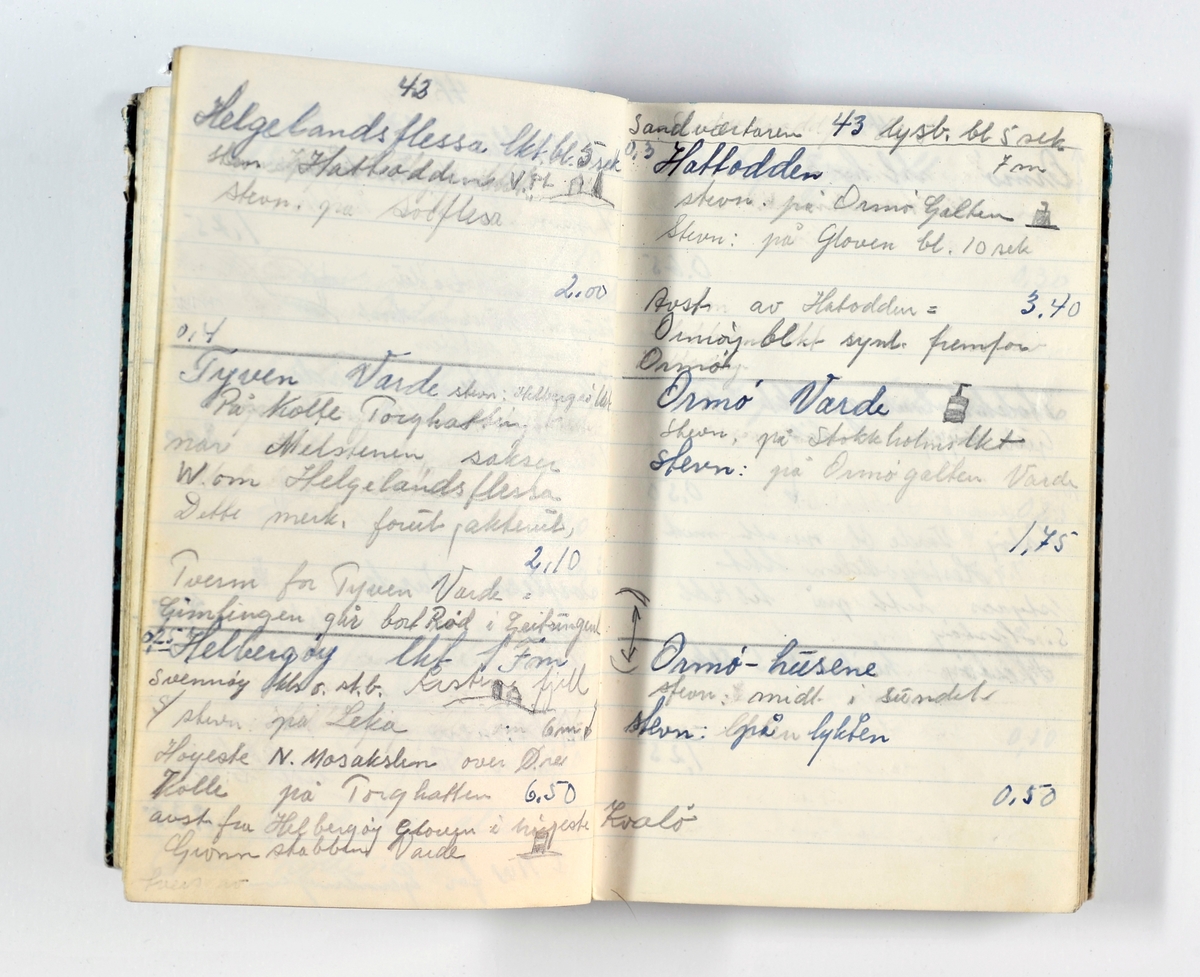 43
Helgelandsflessa lkt. bl. 5 sek
stevn Hattodden V. Pt
stevn. på Solflesa
2.00
0,4
Tyven Varde stevn: Helbergsø lkt
På Kolle Torghatten
når Melstenen sakser
W. om Helgelandsflessa
Dette merk. forut, akterut,
2,10
Tverm for Tyven Varde =
Gimlingen går bort Rød i Leitsungen
0,25 Helbergøy lkt Fm
Svennøy kls o. st.b. fjell
stevn på Leka om 6 m
Høgeste N. Mosakslen over
Kolle på Torghatten 6.50
avst fra Helbergøy Gloven i høgeste Kvalø
Grønn stabben Varde
Sandværtaren 43 lysb. bl 5 sek
0,3 Hattodden 7m
stevn. på Ormø Galten
Stevn: på Gloven bl. 10 sek
Avst av Hatodden = 3.40
Ormøy blkt synl. fremfor
Ormø
Ormø Varde
stevn. på Stokkholm lkt
Stevn: på Ormøgalten Varde
1,75
Ormø-husene
stevn: midt i sundet
Stevn: på lykten
0,50